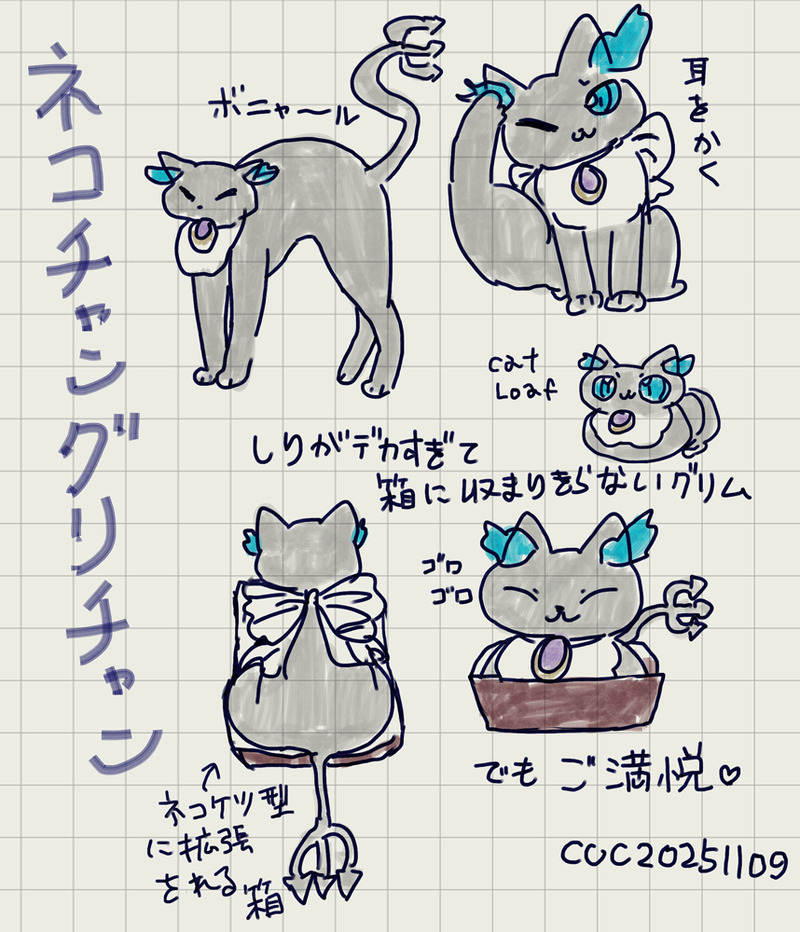 ネコチャングリチャン
ボニャ〜ル
耳をかく
cat
Loaf
しりがデカすぎて
箱に収まりきらないグリム
ゴロ
ゴロ
でもご満悦♡
ネコケツ型
に拡張
される箱
COC20251109